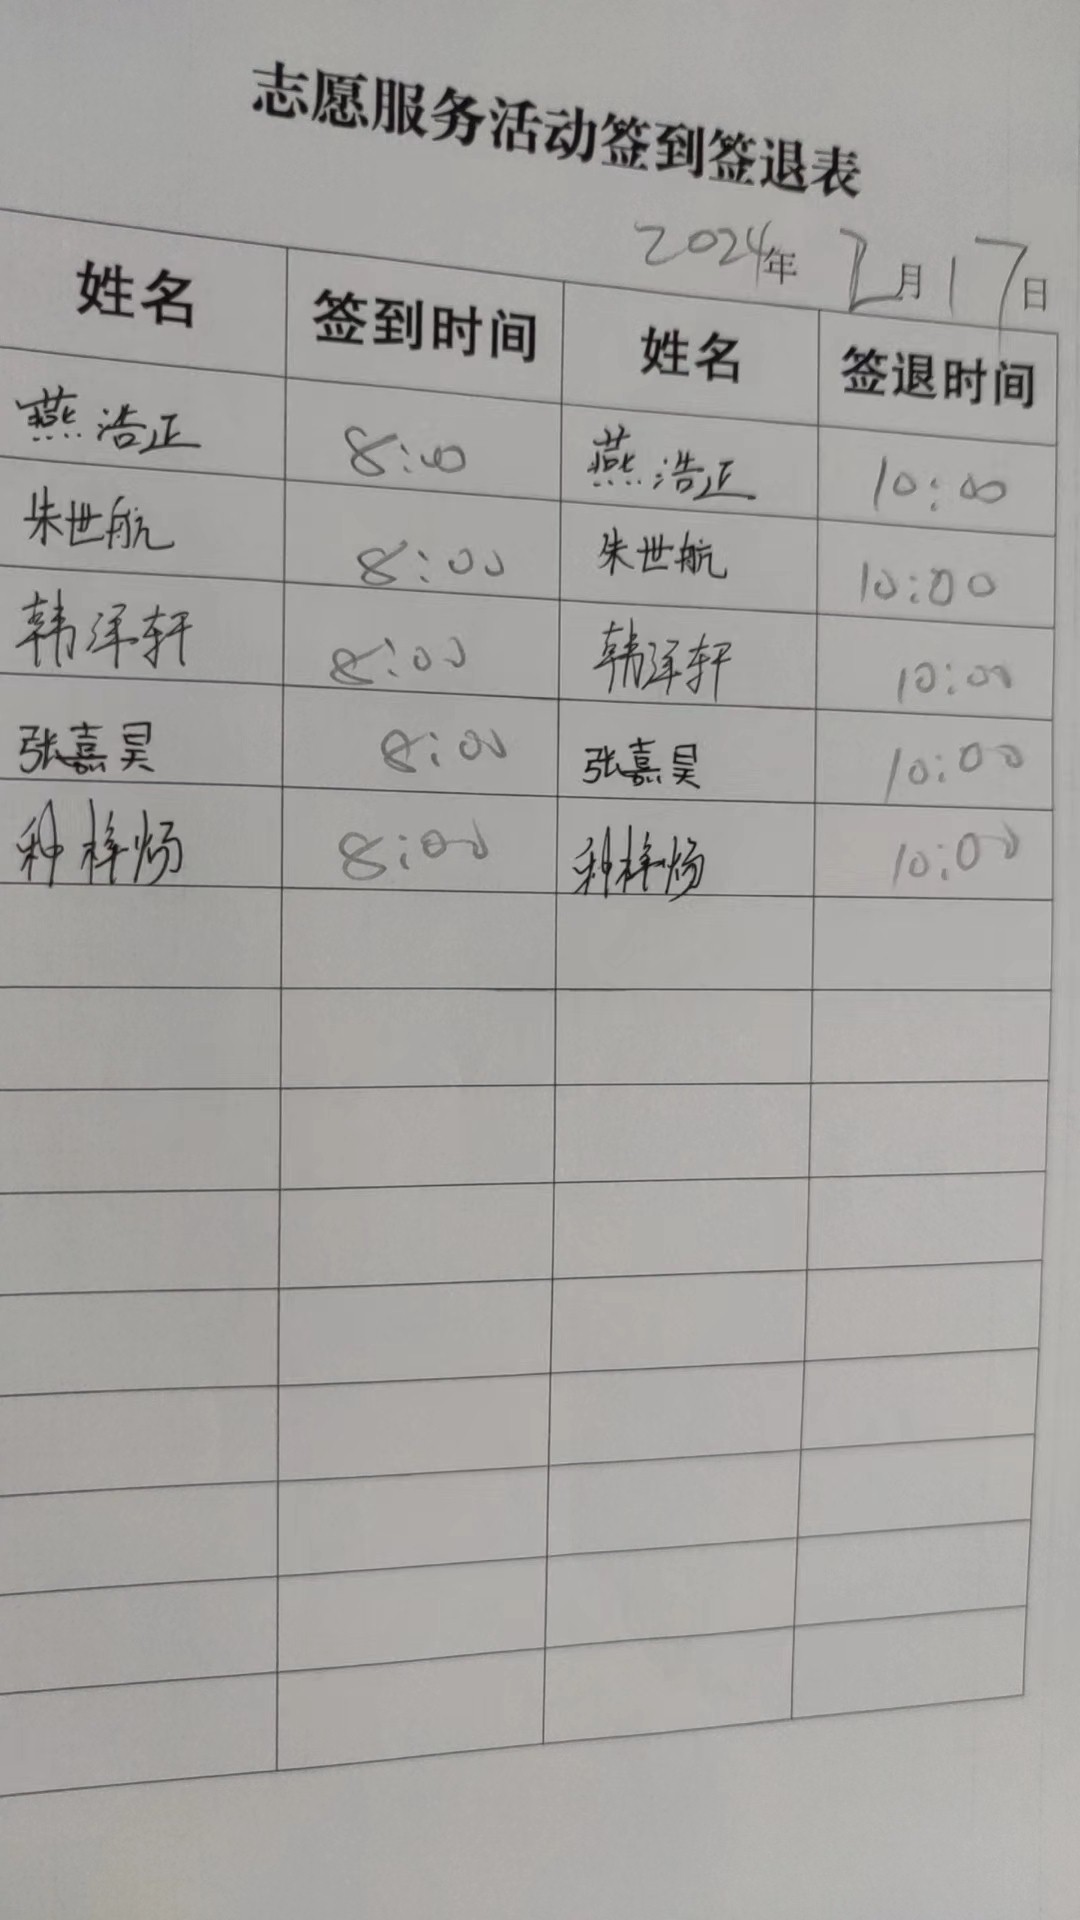 志愿服务活动签到签退表
2024年 2月17日
姓名 签到时间 姓名 签退时间
燕浩正 8:00 燕浩正 10:00
朱世航 8:00 朱世航 10:00
韩泽轩 8:00 韩泽轩 10:00
张嘉昊 8:00 张嘉昊 10:00
种梓炀 8:00 种梓炀 10:00